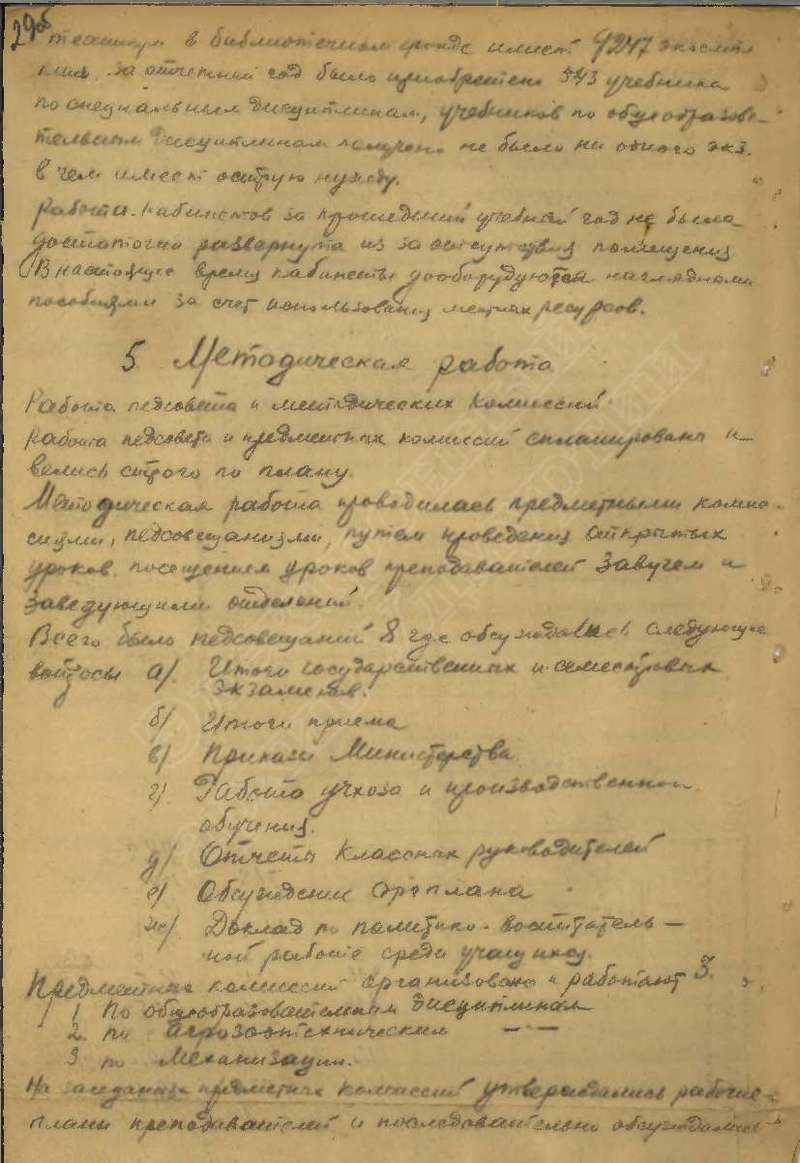 29об
техникум в библиотечном фонде имеет 9247 экземпля
ров. за отчетный год было приобретено 543 учебника
по специальным дисциплинам, учебников по общеобразова-
тельным дисциплинам получено не было ни одного экз.
в чем имеет острую нужду.
Работа кабинетов за прошедший учебный год не была
достаточно развернута из за отсутствия помещения
В настоящее время кабинеты дооборудуются наглядными
пособиями за счет использования местных ресурсов.
5 Методическая работа
Работа педсовета и методических комиссий
Работа педсовета и предметных комиссий спланирована и
велись строго по плану.
Методическая работа проводилась предметными комис-
сиями, педсовещаниями, путем проведения открытых
уроков, посещением уроков преподавателей завучем и
заведующими отделений.
Всего было педсовещаний 8 где обсуждались следующие
вопросы а/ Итоги государственных и семестровых
экзаменов.
б/ Итоги приема
в/ Приказы Министерства
г/ Работа учхоза и производственного
обучения.
д/ Отчеты классных руководителей
е/ Обсуждение оргплана
ж/ Доклад по политико-воспитатель-
ной работе среди учащихся.
Предметных комиссий организовано и работают 3.
1 По общеобразовательным дисциплинам
2. по агрозоотехническим — —
3 по Механизации.
На заседаниях предметных комиссий утверждались рабочие
планы преподавателей и последовательно обсуждались